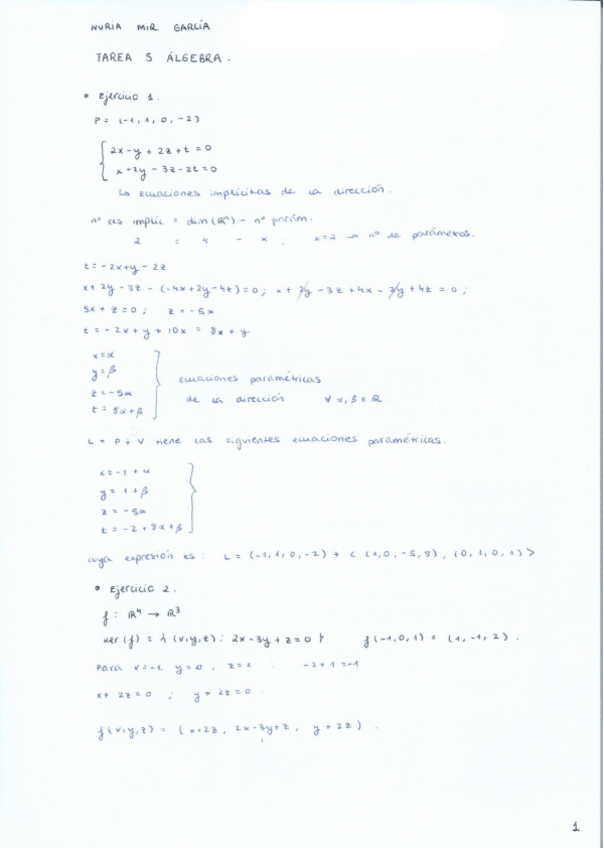 NURIA MIR GARCÍA
TAREA 5 ÁLGEBRA.
• Ejercicio 1.
P = (-1, 1, 0, -2)
2x - y + 2z + t = 0
x + 2y - 3z - 2t = 0
↳ Ecuaciones implícitas de la dirección.
nº ecs implíc = dim (Rⁿ) - nº parám.
2 = 4 - x ; x = 2 → nº de parámetros.
t = -2x + y - 2z
x + 2y - 3z - (-4x + 2y - 4z) = 0 ; x + 2y - 3z + 4x - 2y + 4z = 0 ;
5x + z = 0 ; z = -5x
t = -2x + y + 10x = 8x + y
x = α
y = β
z = -5α
t = 8α + β
Ecuaciones paramétricas
de la dirección ∀ α, β ∈ R.
L = P + V tiene las siguientes ecuaciones paramétricas.
x = -1 + α
y = 1 + β
z = -5α
t = -2 + 8α + β
cuya expresión es : L = (-1, 1, 0, -2) + < (1, 0, -5, 8), (0, 1, 0, 1) >
• Ejercicio 2.
f : R⁴ → R³
Ker (f) = { (x, y, z) : 2x - 3y + z = 0 } f(-1, 0, 1) = (1, -1, 2).
Para x = -1, y = 0, z = 1 : -2 + 1 = -1
x + 2z = 0 ; y + 2z = 0.
f(x, y, z) = (x + 2z, 2x - 3y + z, y + 2z).
1